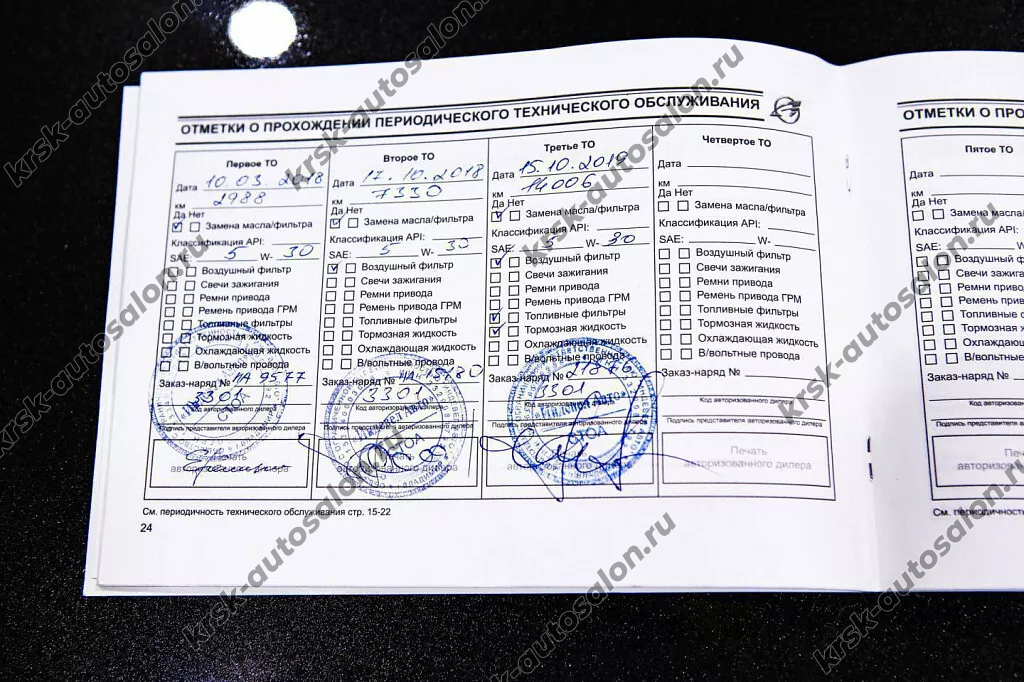 ОТМЕТКИ О ПРОХОЖДЕНИИ ПЕРИОДИЧЕСКОГО ТЕХНИЧЕСКОГО ОБСЛУЖИВАНИЯ
Первое ТО
Дата 10.03.2018
км 2988
Да Нет
Замена масла/фильтра
Классификация API:
SAE: 5 W- 30
Воздушный фильтр
Свечи зажигания
Ремни привода
Ремень привода ГРМ
Топливные фильтры
Тормозная жидкость
Охлаждающая жидкость
В/вольтные провода
Заказ-наряд № НА 9577
3301
Код авторизованного дилера
Подпись представителя авторизованного дилера
Второе ТО
Дата 17.10.2018
км 7330
Да Нет
Замена масла/фильтра
Классификация API:
SAE: 5 W- 30
Воздушный фильтр
Свечи зажигания
Ремни привода
Ремень привода ГРМ
Топливные фильтры
Тормозная жидкость
Охлаждающая жидкость
В/вольтные провода
Заказ-наряд № НА-15180
3301
Код авторизованного дилера
Подпись представителя авторизованного дилера
авторизованного дилера
Третье ТО
Дата 15.10.2019
км 14006
Да Нет
Замена масла/фильтра
Классификация API:
SAE: 5 W- 30
Воздушный фильтр
Свечи зажигания
Ремни привода
Ремень привода ГРМ
Топливные фильтры
Тормозная жидкость
Охлаждающая жидкость
В/вольтные провода
Заказ-наряд № 21876
3301
Код авторизованного дилера
Подпись представителя авторизованного дилера
«Пилот Авто»
СТОА
авторизованного дилера
Четвертое ТО
Дата
км
Да Нет
Замена масла/фильтра
Классификация API:
SAE: W-
Воздушный фильтр
Свечи зажигания
Ремни привода
Ремень привода ГРМ
Топливные фильтры
Тормозная жидкость
Охлаждающая жидкость
В/вольтные провода
Заказ-наряд №
Код авторизованного дилера
Подпись представителя авторизованного дилера
Печать
авторизованного дилера
См. периодичность технического обслуживания стр. 15-22
24
ОТМЕТКИ О ПРО
Пятое ТО
Дата
км
Да Нет
Замена масла/ф
Классификация API:
SAE: W-
Воздушный ф
Свечи зажига
Ремни приво
Ремень приво
Топливные ф
Тормозная ж
Охлаждающ
В/вольтные
Заказ-наряд №
Код авторизова
Подпись представителя авто
Печ
авторизован
См. периодичность
krsk-autosalon.ru
krsk-autosalon.ru
krsk-autosalon.ru
krsk-autosalon.ru
krsk-autosalon.ru
krsk-autosalon.ru
krsk-autosalon.ru
krsk-autosalon.ru
krsk-autosalon.ru
krsk-autosalon.ru